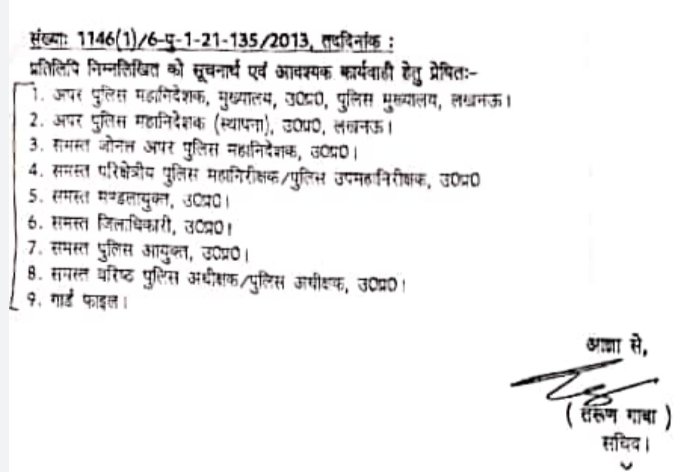 संख्याः 1146(1)/6-पु-1-21-135/2013, तद्दिनांक :
प्रतिलिपि निम्नलिखित को सूचनार्थ एवं आवश्यक कार्यवाही हेतु प्रेषितः-
1. अपर पुलिस महानिदेशक, मुख्यालय, उ0प्र0, पुलिस मुख्यालय, लखनऊ।
2. अपर पुलिस महानिदेशक (स्थापना), उ0प्र0, लखनऊ।
3. समस्त जोनल अपर पुलिस महानिदेशक, उ0प्र0।
4. समस्त परिक्षेत्रीय पुलिस महानिरीक्षक/पुलिस उपमहानिरीक्षक, उ0प्र0
5. समस्त मण्डलायुक्त, उ0प्र0।
6. समस्त जिलाधिकारी, उ0प्र0।
7. समस्त पुलिस आयुक्त, उ0प्र0।
8. समस्त वरिष्ठ पुलिस अधीक्षक/पुलिस अधीक्षक, उ0प्र0।
9. गार्ड फाइल।
आज्ञा से,
( तरूण गाबा )
सचिव।